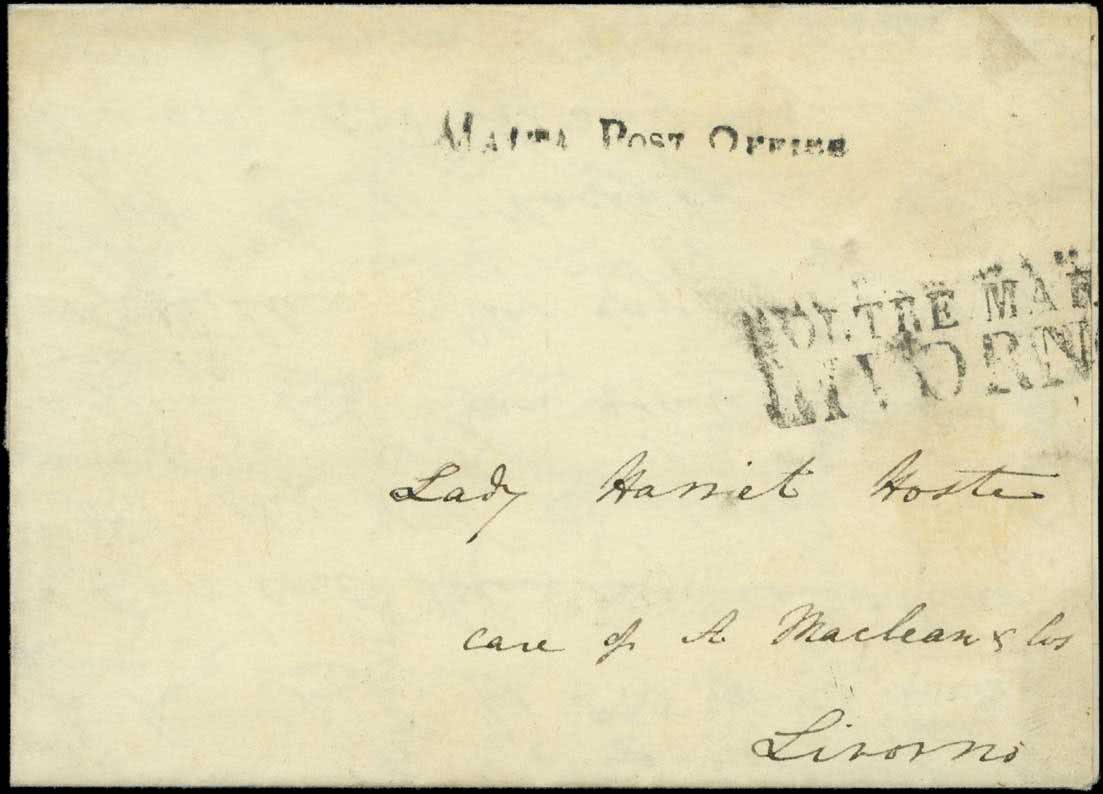 Malta Post Office
OLTRE MAR
LIVORN
Lady Harriet Hoste
care of A Maclean & Cos
Livorno